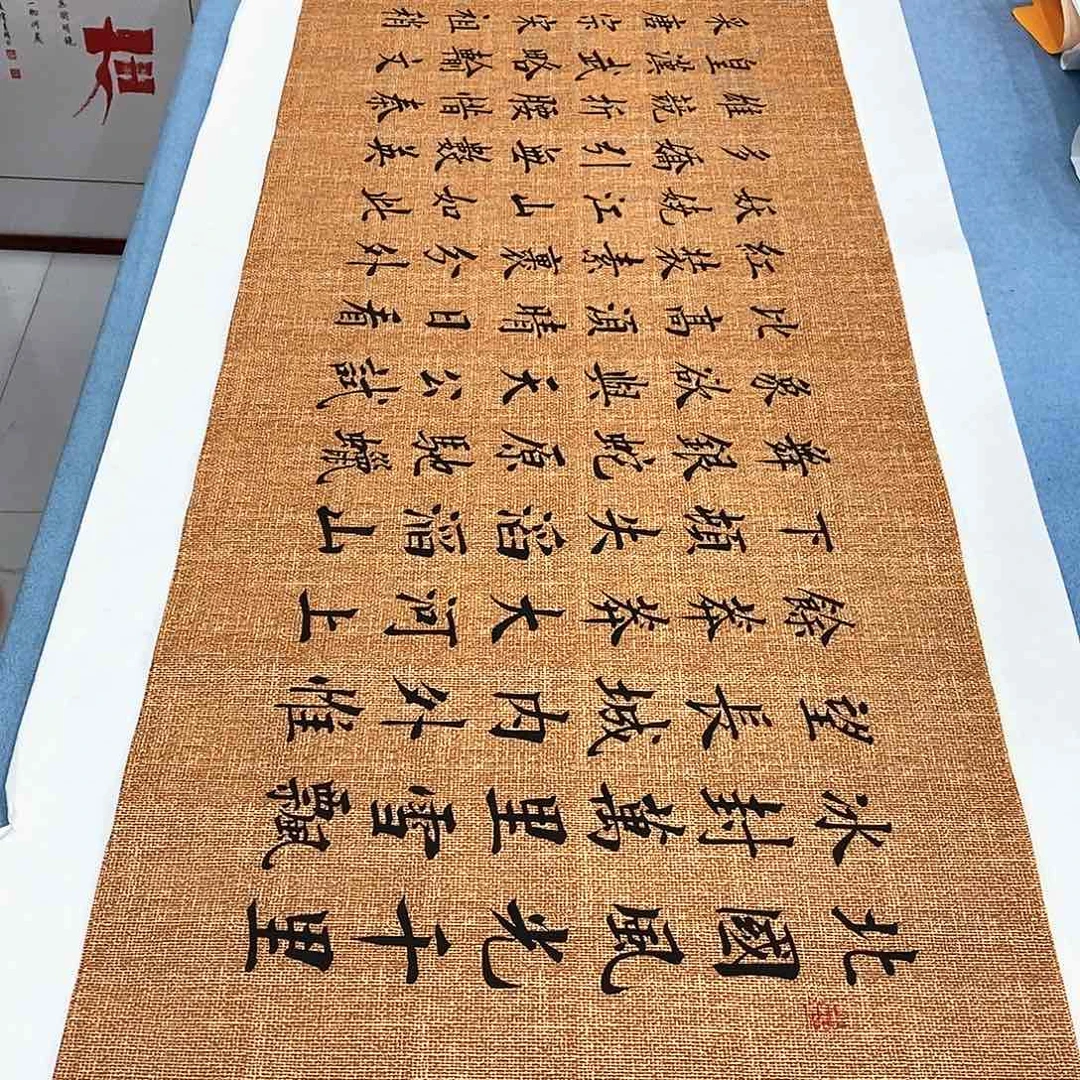 北國風光千里
冰封萬里雪飄
望長城内外惟
餘莽莽大河上
下頓失滔滔山
舞銀蛇原馳蠟
象欲與天公試
比高須晴日看
紅裝素裹分外
妖娆江山如此
多嬌引無數英
雄競折腰惜秦
皇漢武略輸文
采唐宗宋祖稍